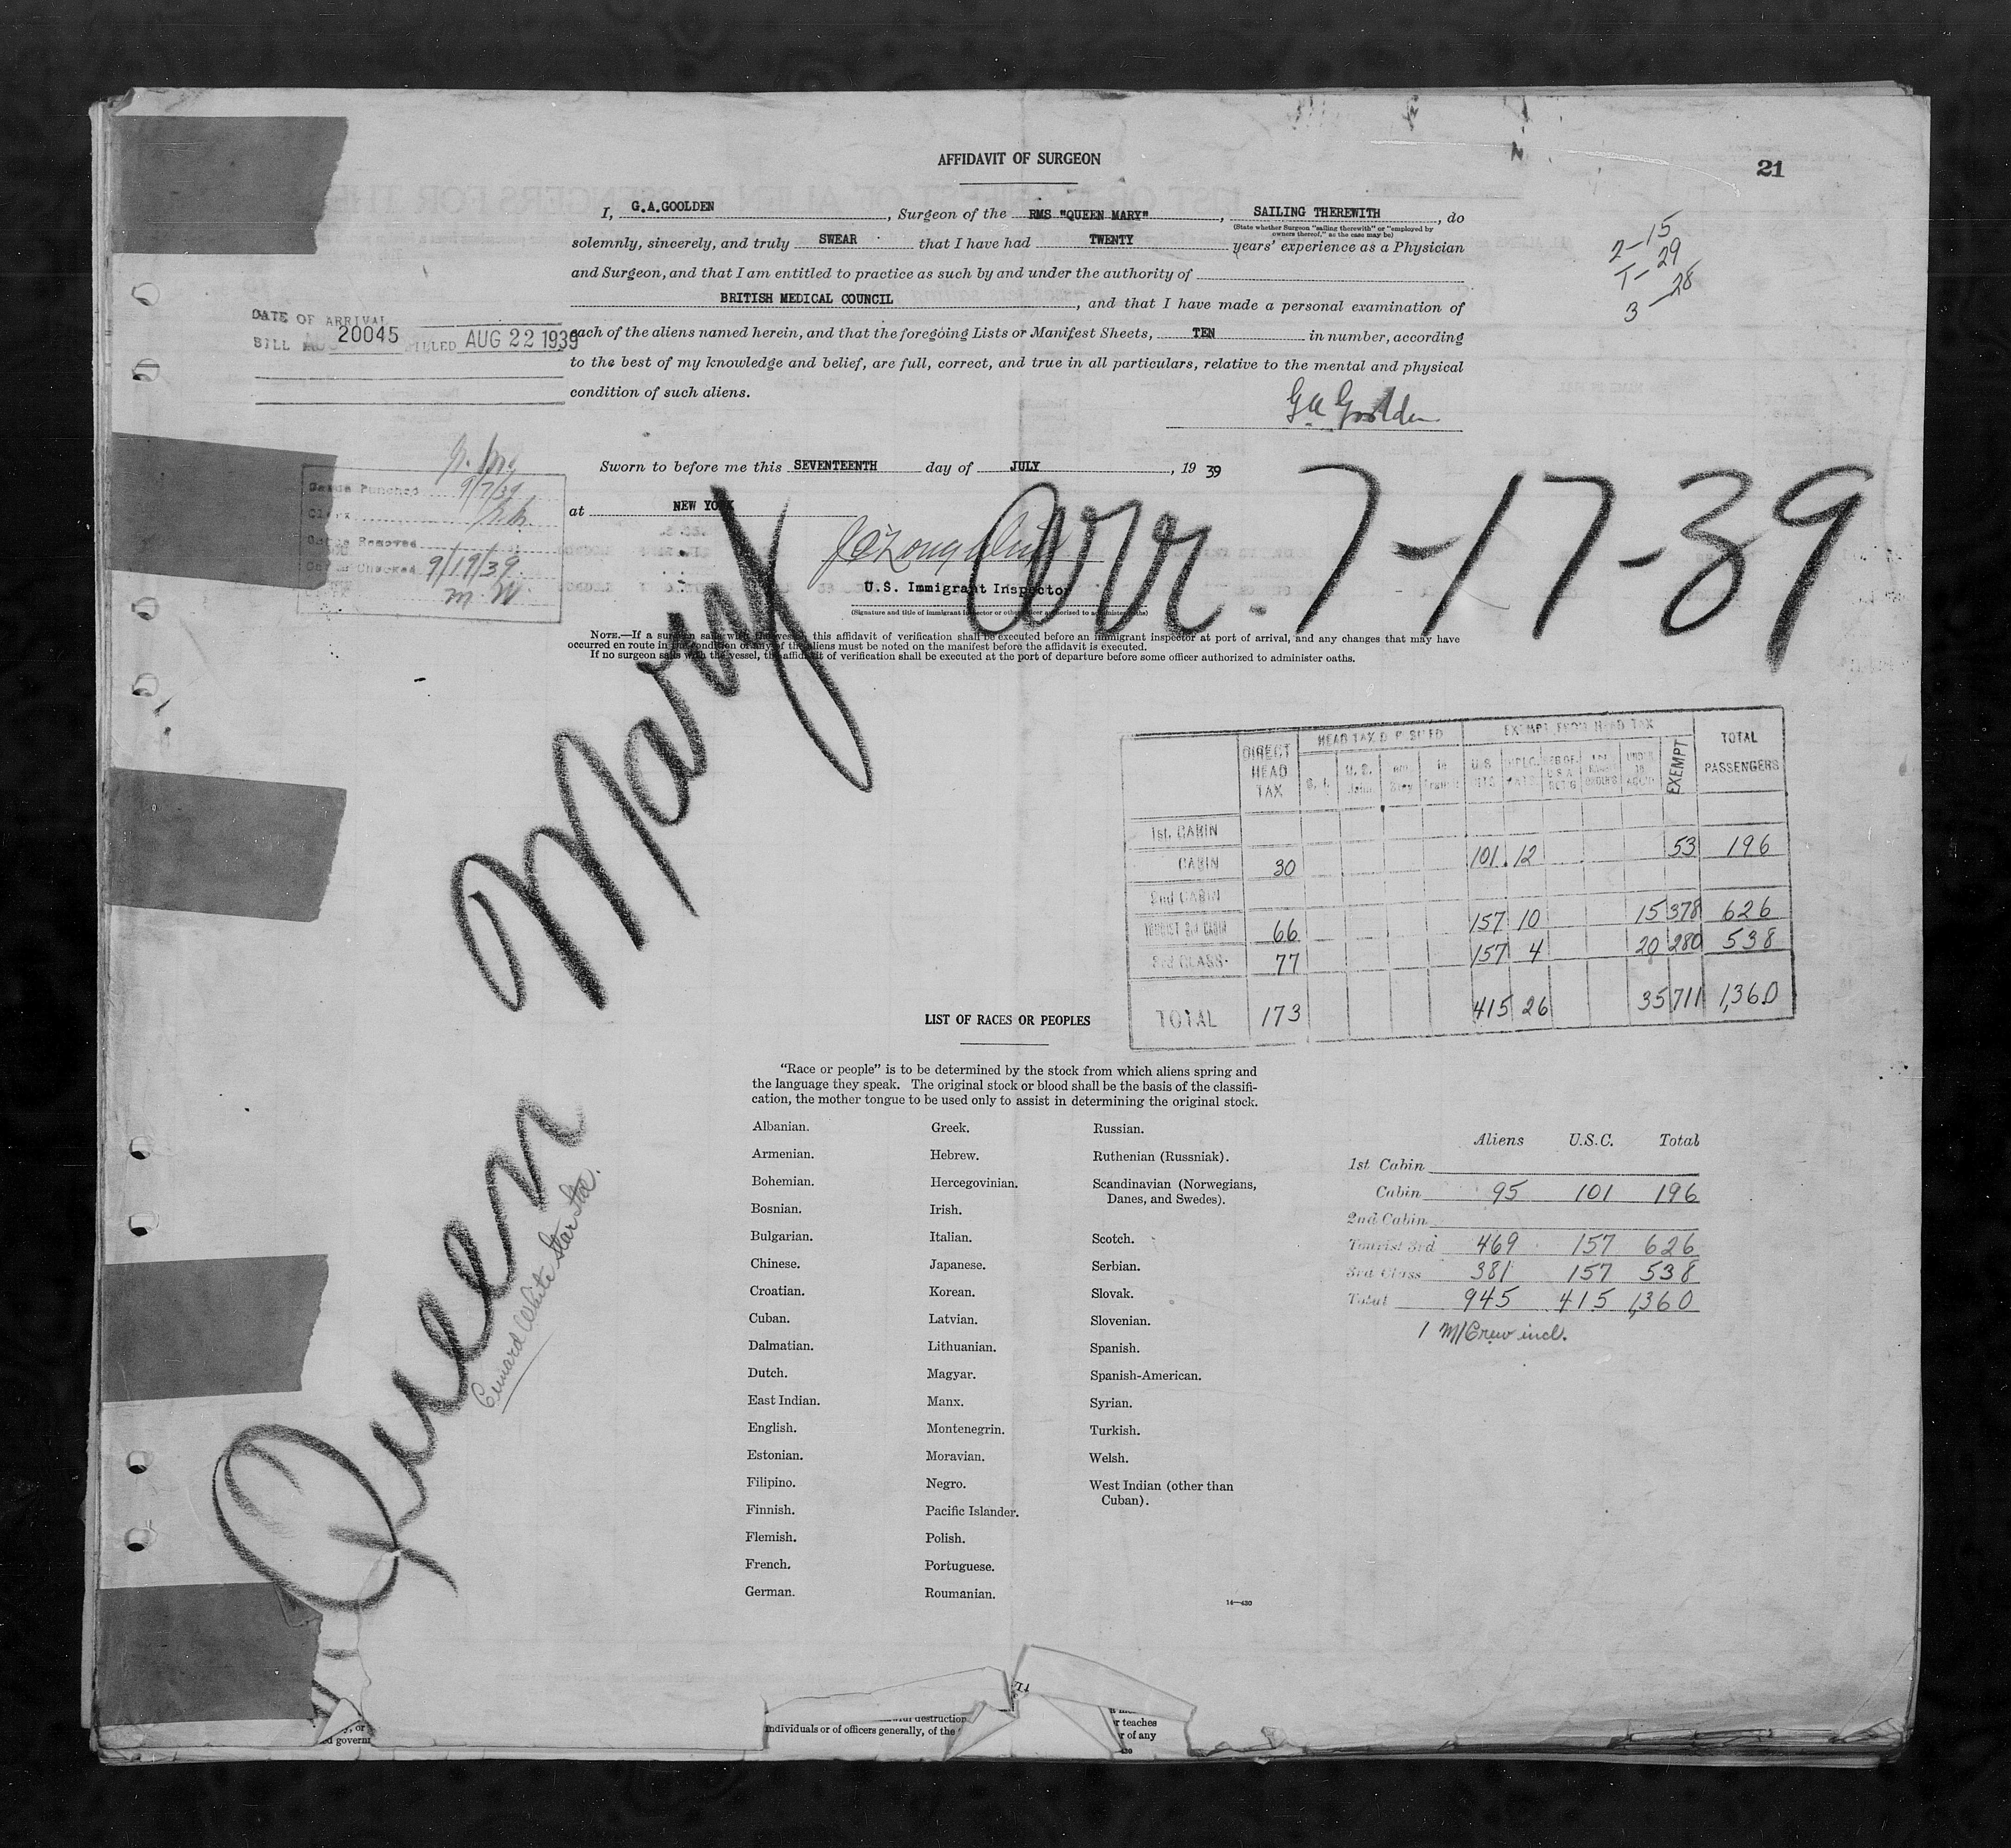 AFFIDAVIT OF SURGEON
21
I, G.A.GOOLDEN, Surgeon of the RMS "QUEEN MARY", SAILING THEREWITH, do
(State whether Surgeon "sailing therewith" or "employed by
owners thereof," as the case may be)
solemnly, sincerely, and truly SWEAR that I have had TWENTY years' experience as a Physician
and Surgeon, and that I am entitled to practice as such by and under the authority of
BRITISH MEDICAL COUNCIL, and that I have made a personal examination of
each of the aliens named herein, and that the foregoing Lists or Manifest Sheets, TEN in number, according
to the best of my knowledge and belief, are full, correct, and true in all particulars, relative to the mental and physical
condition of such aliens.
G A Goolden
2-15
1-29
3-28
DATE OF ARRIVAL
BILL 20045 FILLED AUG 22 1939
Sworn to before me this SEVENTEENTH day of JULY, 19 39
at NEW YORK
U.S. Immigrant Inspector
(Signature and title of immigrant inspector or other officer authorized to administer oaths)
Punched 9/7/39
Clerk
Removed
Checked 9/19/39
M. W.
Arr. 7-17-39
Queen Mary
Cunard White Star Line.
NOTE.—If a surgeon sails with the vessel, this affidavit of verification shall be executed before an immigrant inspector at port of arrival, and any changes that may have
occurred en route in the condition of any of the aliens must be noted on the manifest before the affidavit is executed.
If no surgeon sails with the vessel, the affidavit of verification shall be executed at the port of departure before some officer authorized to administer oaths.
DIRECT HEAD TAX
EXEMPT FROM HEAD TAX
EXEMPT
TOTAL PASSENGERS
1st. CABIN
CABIN 30 101 12 53 196
2nd CABIN
TOURIST 3rd CABIN 66 157 10 15 378 626
3rd CLASS 77 157 4 20 280 538
TOTAL 173 415 26 35 711 1,360
LIST OF RACES OR PEOPLES
"Race or people" is to be determined by the stock from which aliens spring and
the language they speak. The original stock or blood shall be the basis of the classifi-
cation, the mother tongue to be used only to assist in determining the original stock.
Albanian.
Armenian.
Bohemian.
Bosnian.
Bulgarian.
Chinese.
Croatian.
Cuban.
Dalmatian.
Dutch.
East Indian.
English.
Estonian.
Filipino.
Finnish.
Flemish.
French.
German.
Greek.
Hebrew.
Hercegovinian.
Irish.
Italian.
Japanese.
Korean.
Latvian.
Lithuanian.
Magyar.
Manx.
Montenegrin.
Moravian.
Negro.
Pacific Islander.
Polish.
Portuguese.
Roumanian.
Russian.
Ruthenian (Russniak).
Scandinavian (Norwegians,
Danes, and Swedes).
Scotch.
Serbian.
Slovak.
Slovenian.
Spanish.
Spanish-American.
Syrian.
Turkish.
Welsh.
West Indian (other than
Cuban).
14—430
Aliens U.S.C. Total
1st Cabin
Cabin 95 101 196
2nd Cabin
Tourist 3rd 469 157 626
3rd Class 381 157 538
Total 945 415 1,360
1 M/Crew incl.
destruction
individuals or of officers generally, of the
r teaches
r of any
y, or
d governm